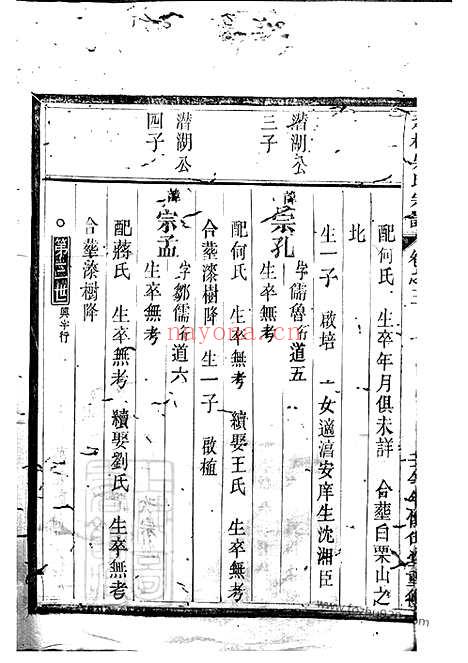 配何氏 生卒年月俱未詳 合葬白栗山之
北
生一子 啟培 一女適湻安庠生沈湘臣
潛湖公
三子
諱宗孔 字儒魯行道五
生卒無考
配何氏 生卒無考 續娶王氏 生卒無考
合葬漆樹降 生一子 啟植
潛湖公
四子
諱宗孟 字鄒儒行道六
生卒無考
配蔣氏 生卒無考 續娶劉氏 生卒無考
合葬漆樹降
興字行
nayona.cn